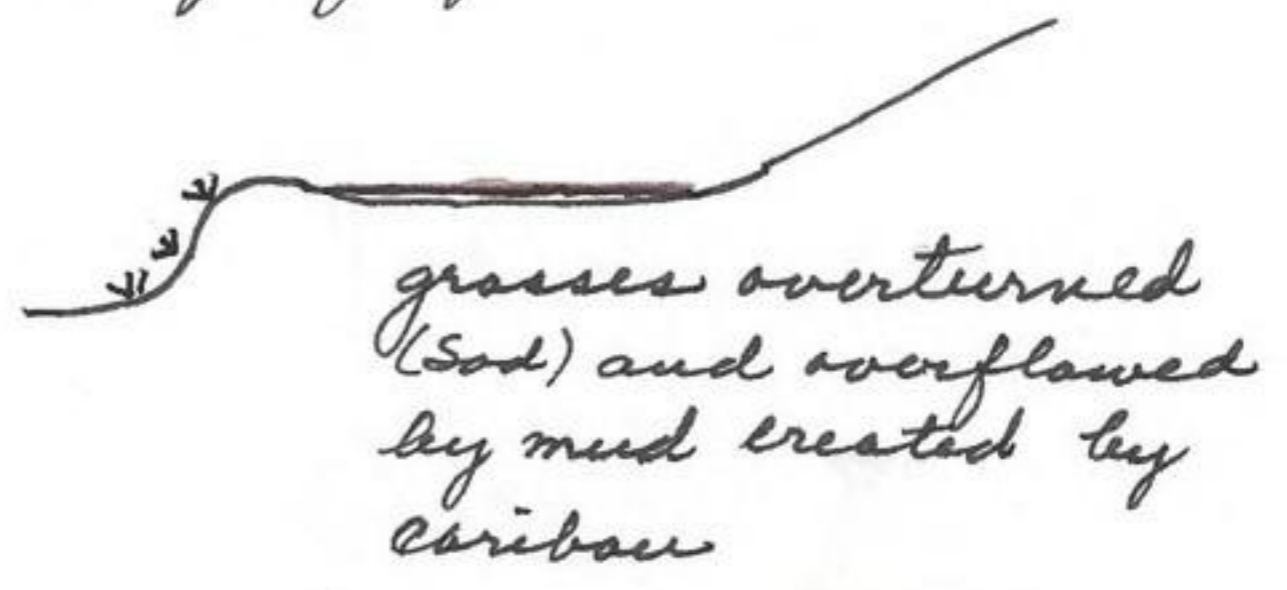 grasses overturned
(Sod) and overflowed
by mud created by
caribou